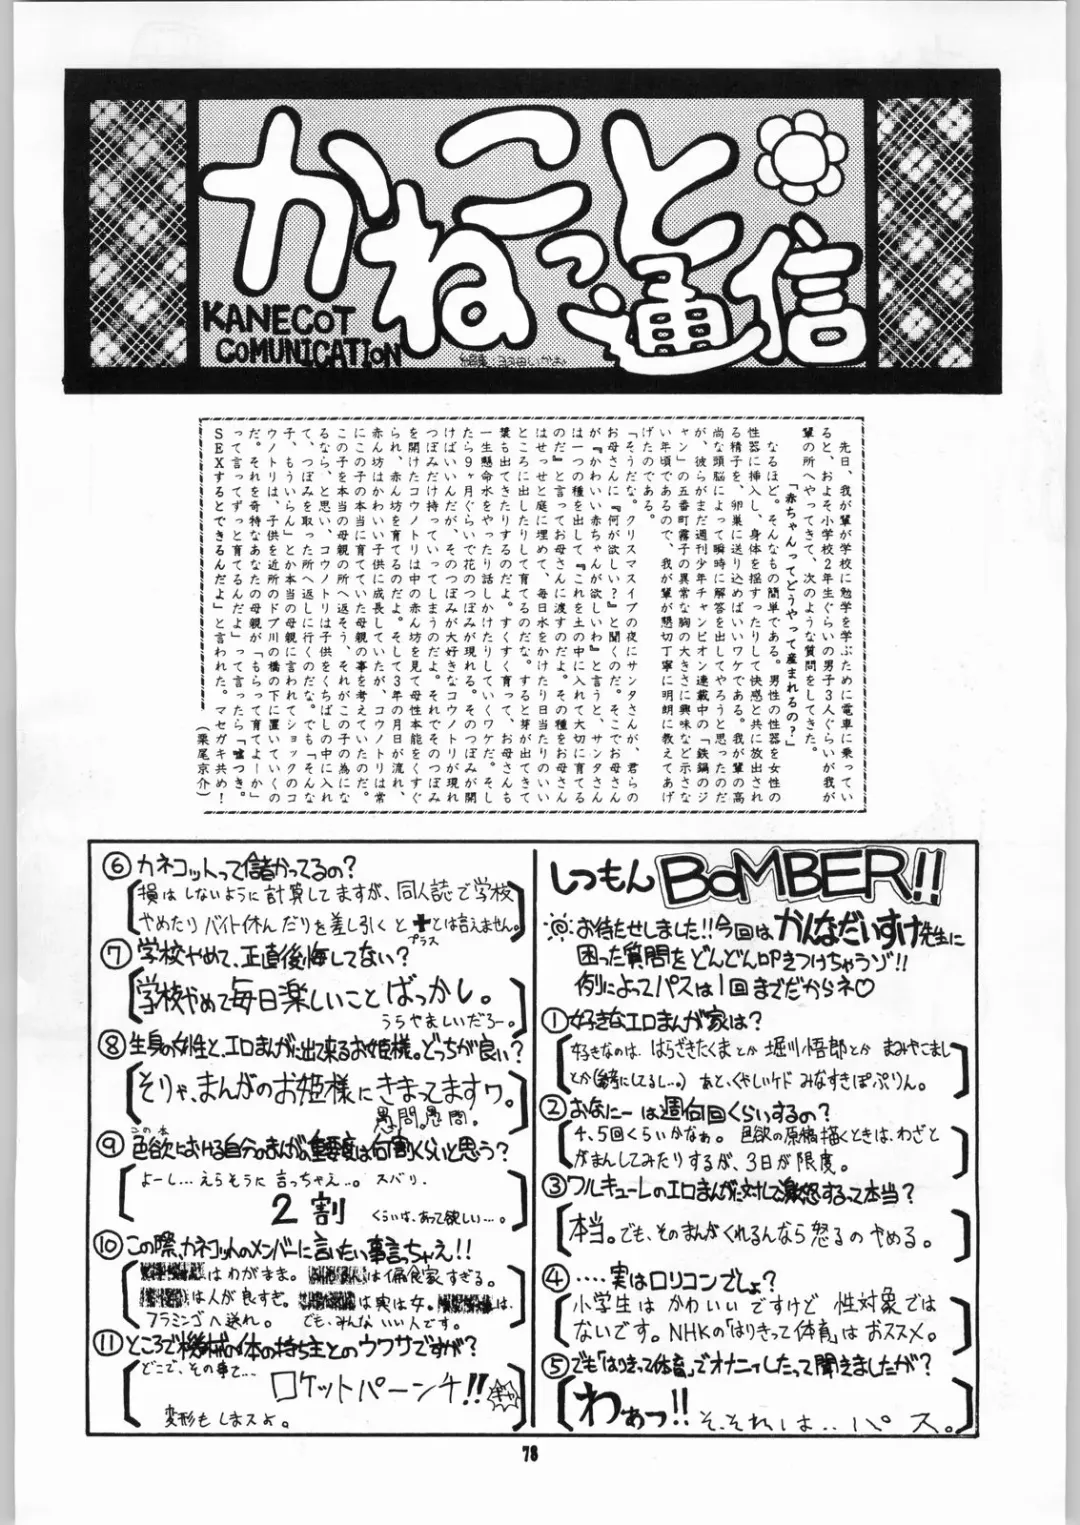 かねこっと通信
KANECOT
COMUNICATION
先日、我が輩が学校に勉学を学ぶために電車に乗ってい
ると、およそ小学校2年生ぐらいの男子3人ぐらいが我が
輩の所へやってきて、次のような質問をしてきた。
「赤ちゃんってどうやって産まれるの?」
なるほど。そんなもの簡単である。男性の性器を女性の
性器に挿入し、身体を揺すったりして快感と共に放出され
る精子を、卵巣に送り込めばいいワケである。我が輩の高
尚な頭脳によって瞬時に解答を出してやろうと思ったのだ
が、彼らがまだ週刊少年チャンピオン連載中の「鉄鍋のジ
ャン」の五番町霧子の異常な胸の大きさに興味など示さな
い年頃であるので、我が輩が懇切丁寧に明朗に教えてあ
げたのである。
「そうだな。クリスマスイブの夜にサンタさんが、君らの
お母さんに『何が欲しい?』と聞くのだ。そこでお母さん
が『かわいい赤ちゃんが欲しいわ』と言うと、サンタさん
は一つの種を出して『これを土の中に入れて大切に育てる
のだ』と言ってお母さんに渡すのだよ。その種をお母さん
はせっせと庭に埋めて、毎日水をかけたり日当たりのいい
ところに出したりして育てるのだな。すると芽が出てきて
葉も出てきたりするのだよ。すくすく育って、お母さんも
一生懸命水をやったり話しかけたりしていくワケだ。そし
たら9ヶ月ぐらいで花のつぼみが現れる。そのつぼみが開
けばいいんだが、そのつぼみが大好きなコウノトリが現れ
つぼみだけ持っていってしまうのだよ。それでそのつぼみ
を開けたコウノトリは中の赤ん坊を見て母性本能をくすぐ
られ、赤ん坊を育てるのだよ。そして3年の月日が流れ、
赤ん坊はかわいい子供に成長していたが、コウノトリは常
にこの子の本当に育てていた母親の事を考えていたのだ。
この子を本当の母親の所へ返そう、それがこの子の為にな
るなら、と思い、コウノトリは子供をくちばしの中に入れ
て、つぼみを取った所へ返しに行くのだな。でも『そんな
子、もういらん』とか本当の母親に言われてショックのコ
ウノトリは、子供を近所のドブ川の橋の下に置いていくの
だ。それを奇特なあなたの母親が『もらって育てよーか』
って言ってずっと育てるんだよ」って言ったら「嘘つき。
SEXするとできるんだよ」と言われた。マセガキ共め!
(栗尾京介)
しつもん BOMBER!!
お待たせしました!!今回は かんなだいすけ先生に
困った質問をどんどん叩きつけちゃうゾ!!
例によってパスは1回までだからネ♡
①好きなエロまんが家は?
好きなのは、はらざきたくまとか 堀川悟郎とか まみやこまし
とか(参考にしてるし…。) あと、くやしいケド みなすきぽぷりん。
②おなにーは週何回くらいするの?
4、5回くらいかなぁ。 色欲の原稿描くときは、わざと
がまんしてみたりするが、3日が限度。
③ワルキューレのエロまんがに対して激怒するって本当?
本当。でも、そのまんがくれるんなら怒るのやめる。
④……実はロリコンでしょ?
小学生は かわいいですけど 性対象では
ないです。NHKの「はりきって体育」は おススメ。
⑥カネコットって儲かってるの?
損は しないように 計算してますが、同人誌で学校
やめたり バイト休んだりを差し引くと ✚とは言えません。
プラス
⑦学校やめて、正直後悔してない?
学校やめて毎日楽しいこと ばっかし。
うらやましいだろー。
⑧生身の女性と、エロまんがに出て来るお姫様。どっちが良い?
そりゃ、まんがのお姫様にきまってますワ。
愚問。愚問。
この本
⑨色欲における自分のまんがの重要度は何割くらいと思う?
よーし…えらそうに 言っちゃえ…。 ズバリ、
2割 くらいは、あって欲しい…。
⑩この際、カネコットのメンバーに言いたい事言っちゃえ!!
はわがまま。 は偏食家すぎる。
は人が良すぎ。 は実は女。 は、
フラミンゴへ送れ。 でも、みんないい人です。
⑪ところで機械の体の持ち主とのウワサですが?
どこで、その事を…
ロケットパーンチ!! ギャ
変形も しますよ。
78